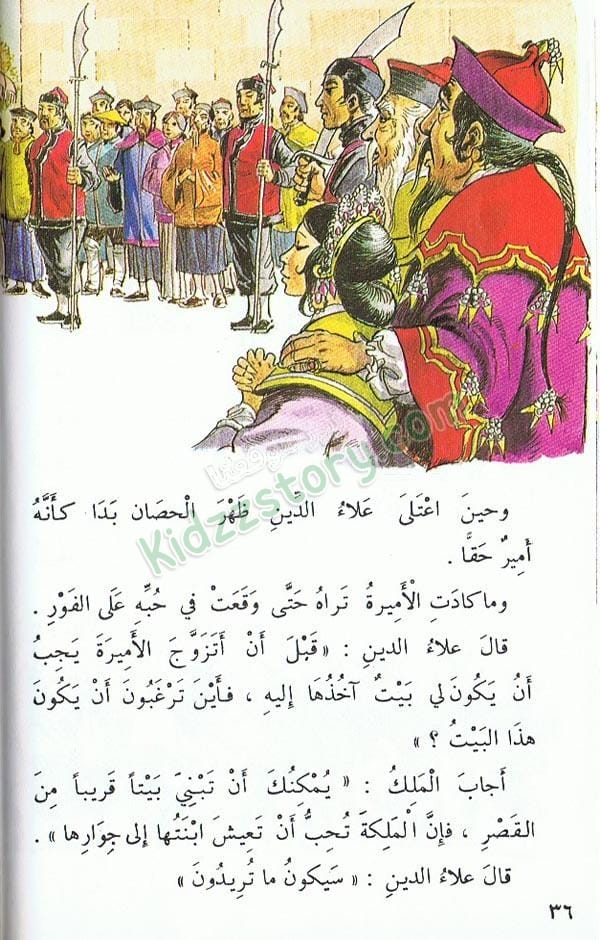 وحينَ اعْتَلىَ عَلاءُ الدِّينِ ظَهْرَ الْحصَان بَدَا كأَنَّهُ
أَمِيرٌ حَقًّا .
وما كادَتِ الْأَمِيرةُ تَراهُ حَتَّى وَقَعَتْ في حُبِّهِ عَلَى الفَوْرِ .
قالَ علاءُ الدينِ : «قَبْلَ أَنْ أَتَزَوَّجَ الأَمِيرَةَ يَجِبُ
أَنْ يَكُونَ لي بَيْتٌ آخُذُهَا إليهِ ، فأيْنَ تَرْغَبُونَ أَنْ يَكُونَ
هذَا البَيْتُ ؟ »
أَجابَ الْمَلِكُ : « يُمْكِنُكَ أَنْ تَبْنِيَ بَيْتاً قَريباً مِنَ
القَصْرِ ، فإِنَّ الْمَلِكةَ تُحِبُّ أَنْ تَعِيشَ ابْنَتُها إلى جِوَارِها» .
قالَ علاءُ الدينِ : « سَيكونُ ما تُرِيدُونَ »
٣٦
Kidzzstory.com